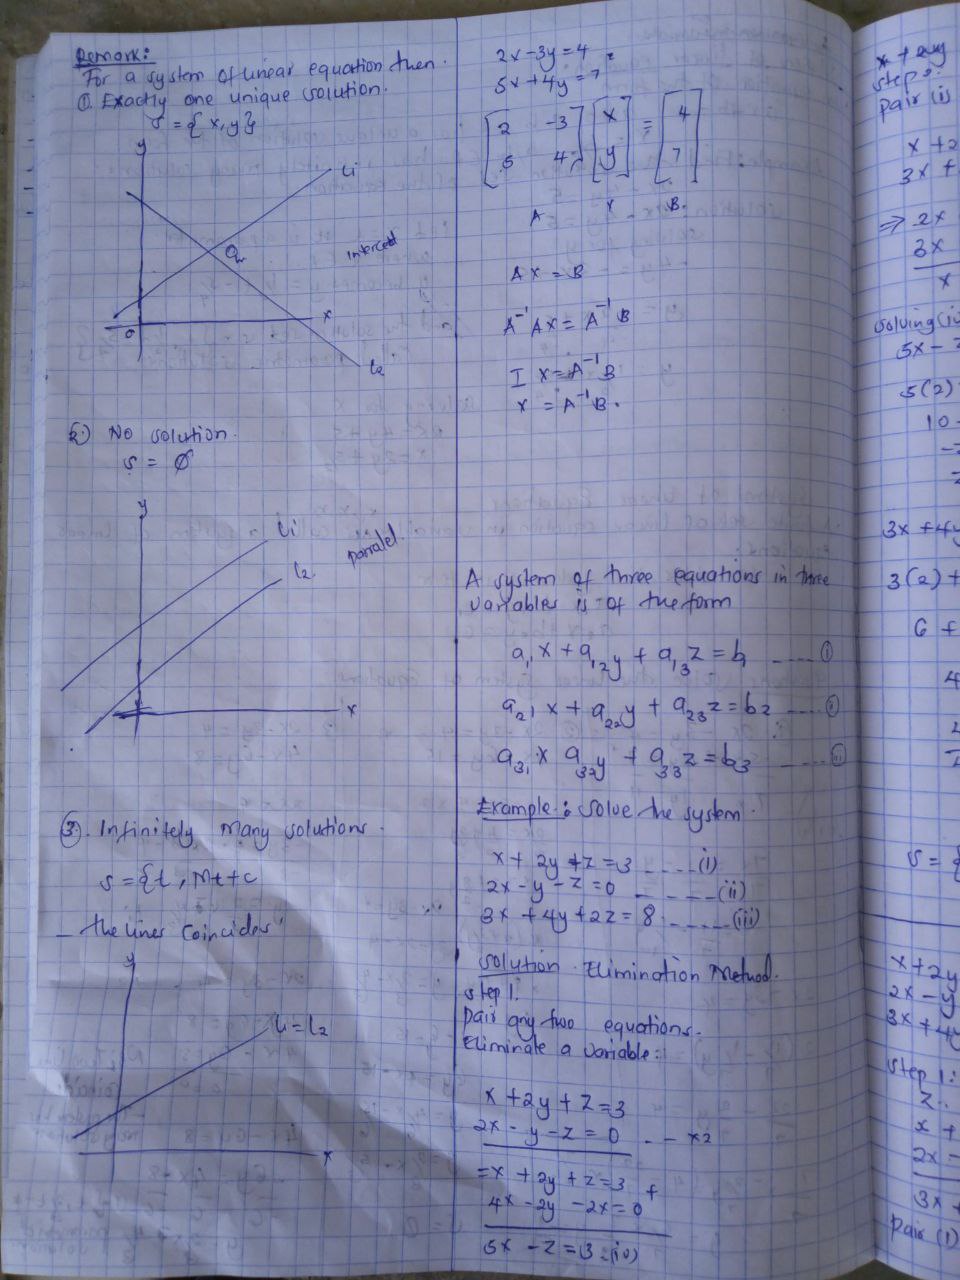 Remark:
For a system of linear equation then.
① Exactly one unique solution.
s = { x, y }
y
L1
intercect
x
o
L2
2) No solution.
s = ∅
y
L1
parralel.
L2
x
③. Infinitely many solutions.
s = { t, mt+c
- the lines coincides
y
L1 = L2
x
2x - 3y = 4
5x + 4y = 7
[2 -3] [x] = [4]
[5 4] [y] [7]
A X B.
AX = B
A⁻¹AX = A⁻¹B
I X = A⁻¹B
X = A⁻¹B.
A system of three equations in three
variables is of the form
a₁x + a₁₂y + a₁₃z = b₁ ---- ⓘ
a₂₁x + a₂₂y + a₂₃z = b₂ ---- ⓘⓘ
a₃₁x a₃₂y + a₃₃z = b₃ ----- ⓘⓘⓘ
Example: Solve the system.
x + 2y + z = 3 ----(i)
2x - y - z = 0 - - - - -(ii)
3x + 4y + 2z = 8 -----(iii)
Solution. Elimination Method.
step 1:
Pair any two equations.
Eliminate a variable:
x + 2y + z = 3
2x - y - z = 0 - - x2
= x + 2y + z = 3 +
4x - 2y - 2x = 0
5x - z = 3 :(iv)
step
pair (i)
x + 2
3x +
⇒ 2x
3x
x
solving (i
5x - z
5(2)
10 -
3x + 4y
3(2) +
6 +
4
s = {
x + 2y
2x - y
3x + 4y
step 1:
z:
x +
2x -
3x +
pair (1)